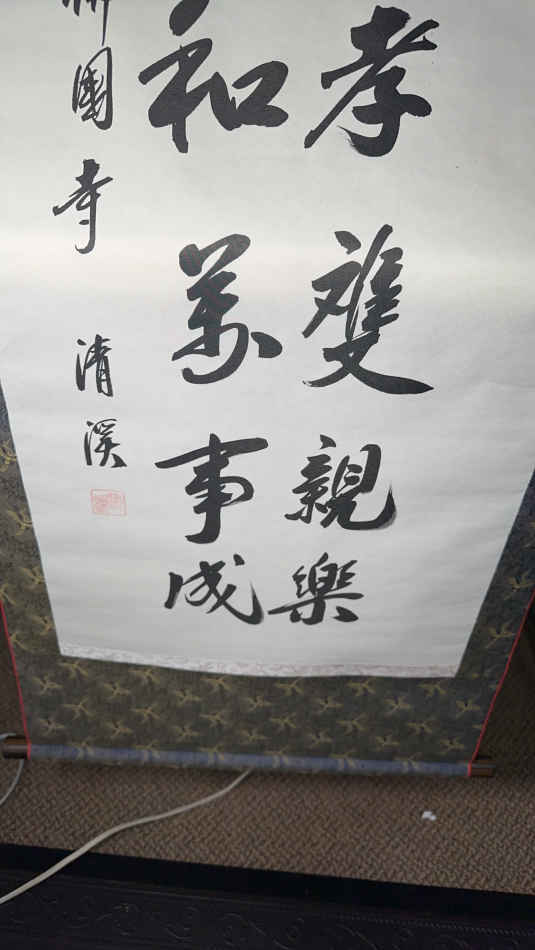 孝雙親樂
和萬事成
國寺 清溪